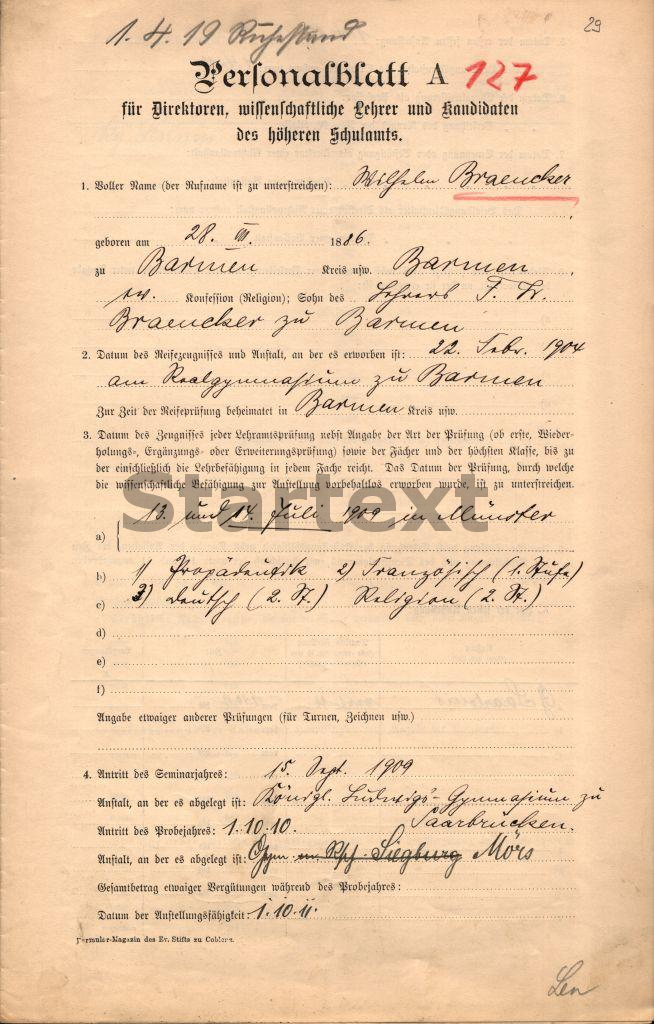 1. 4. 19 Ruhestand
29
Personalblatt A 127
für Direktoren, wissenschaftliche Lehrer und Kandidaten
des höheren Schulamts.
1. Voller Name (der Rufname ist zu unterstreichen): Wilhelm Braencker
geboren am 28. III. 1886.
zu Barmen Kreis usw. Barmen
ev. Konfession (Religion); Sohn des Lehrers F. W.
Braencker zu Barmen
2. Datum des Reifezeugnisses und Anstalt, an der es erworben ist: 22. Febr. 1904
am Realgymnasium zu Barmen
Zur Zeit der Reifeprüfung beheimatet in Barmen Kreis usw.
3. Datum des Zeugnisses jeder Lehramtsprüfung nebst Angabe der Art der Prüfung (ob erste, Wieder-
holungs-, Ergänzungs- oder Erweiterungsprüfung) sowie der Fächer und der höchsten Klasse, bis zu
der einschließlich die Lehrbefähigung in jedem Fache reicht. Das Datum der Prüfung, durch welche
die wissenschaftliche Befähigung zur Anstellung vorbehaltlos erworben wurde, ist zu unterstreichen.
Startext
13. und 14. Juli 1909 in Münster
a)
b) 1) Propädeutik 2) Französisch (1. Stufe)
c) 3) Deutsch (2. St.) Religion (2. St.)
d)
e)
f)
Angabe etwaiger anderer Prüfungen (für Turnen, Zeichnen usw.)
4. Antritt des Seminarjahres: 15. Sept. 1909
Anstalt, an der es abgelegt ist: Königl. Ludwigs-Gymnasium zu
Saarbrücken.
Antritt des Probejahres: 1.10.10.
Anstalt, an der es abgelegt ist: Gym Siegburg Mörs
Gesamtbetrag etwaiger Vergütungen während des Probejahres:
Datum der Anstellungsfähigkeit: 1.10.11.
Formular-Magazin des Ev. Stifts zu Coblenz.